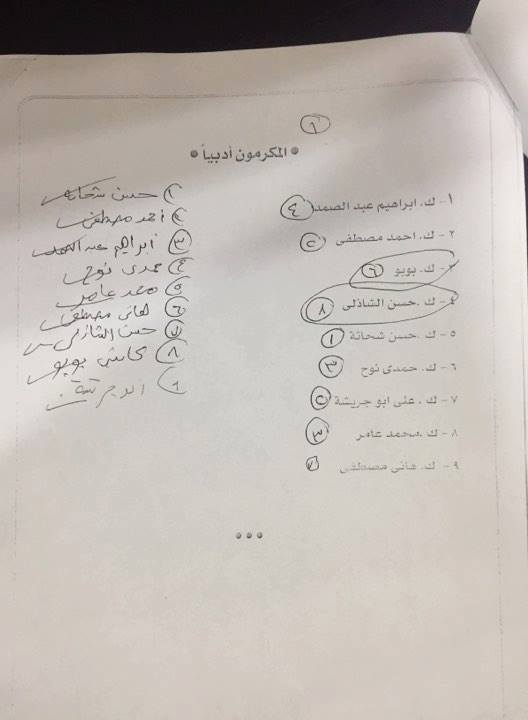 ١
المكرمون أدبياً
١- ك. ابراهيم عبد الصمد ٤
٢- ك. احمد مصطفى ٢
٣- ك. بوبو ٦
٤- ك. حسن الشاذلى ٨
٥- ك. حسن شحاتة ١
٦- ك. حمدى نوح ٣
٧- ك. على ابو جريشة
٨- ك. محمد عامر ٣
٩- ك. هانى مصطفى ٧
١ حسن شحاته
٢ احمد مصطفى
٣ ابراهيم عبد الصمد
٤ حمدى نوح
٥ محمد عامر
٦ هانى مصطفى
٧ حسن الشاذلى
٨ بوبو
٩